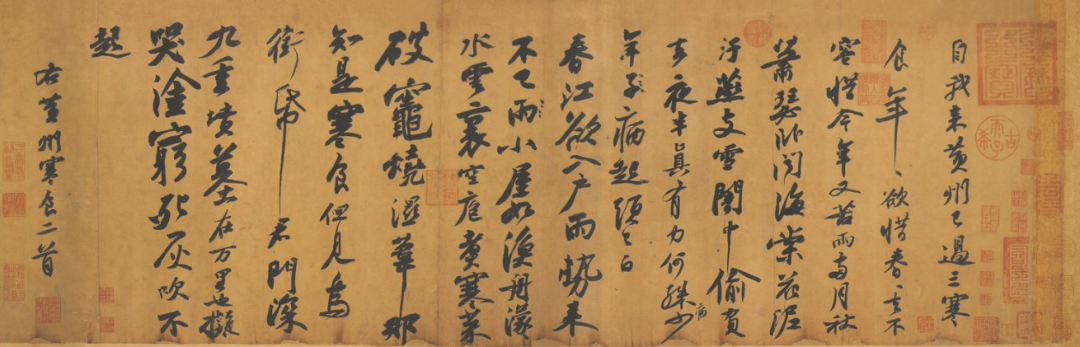 自我來黃州已過三寒
食年〻欲惜春〻去不
容惜今年又苦雨兩月秋
蕭瑟臥聞海棠花泥
汙燕支雪闇中偷負
去夜半真有力何殊病少
年子病起頭已白
春江欲入戶雨勢來
不已雨小屋如漁舟濛
水雲裏空庖煑寒菜
破竈燒濕葦那
知是寒食但見烏
銜帋君門深
九重墳墓在万里也擬
哭塗窮死灰吹不
起
右黃州寒食二首